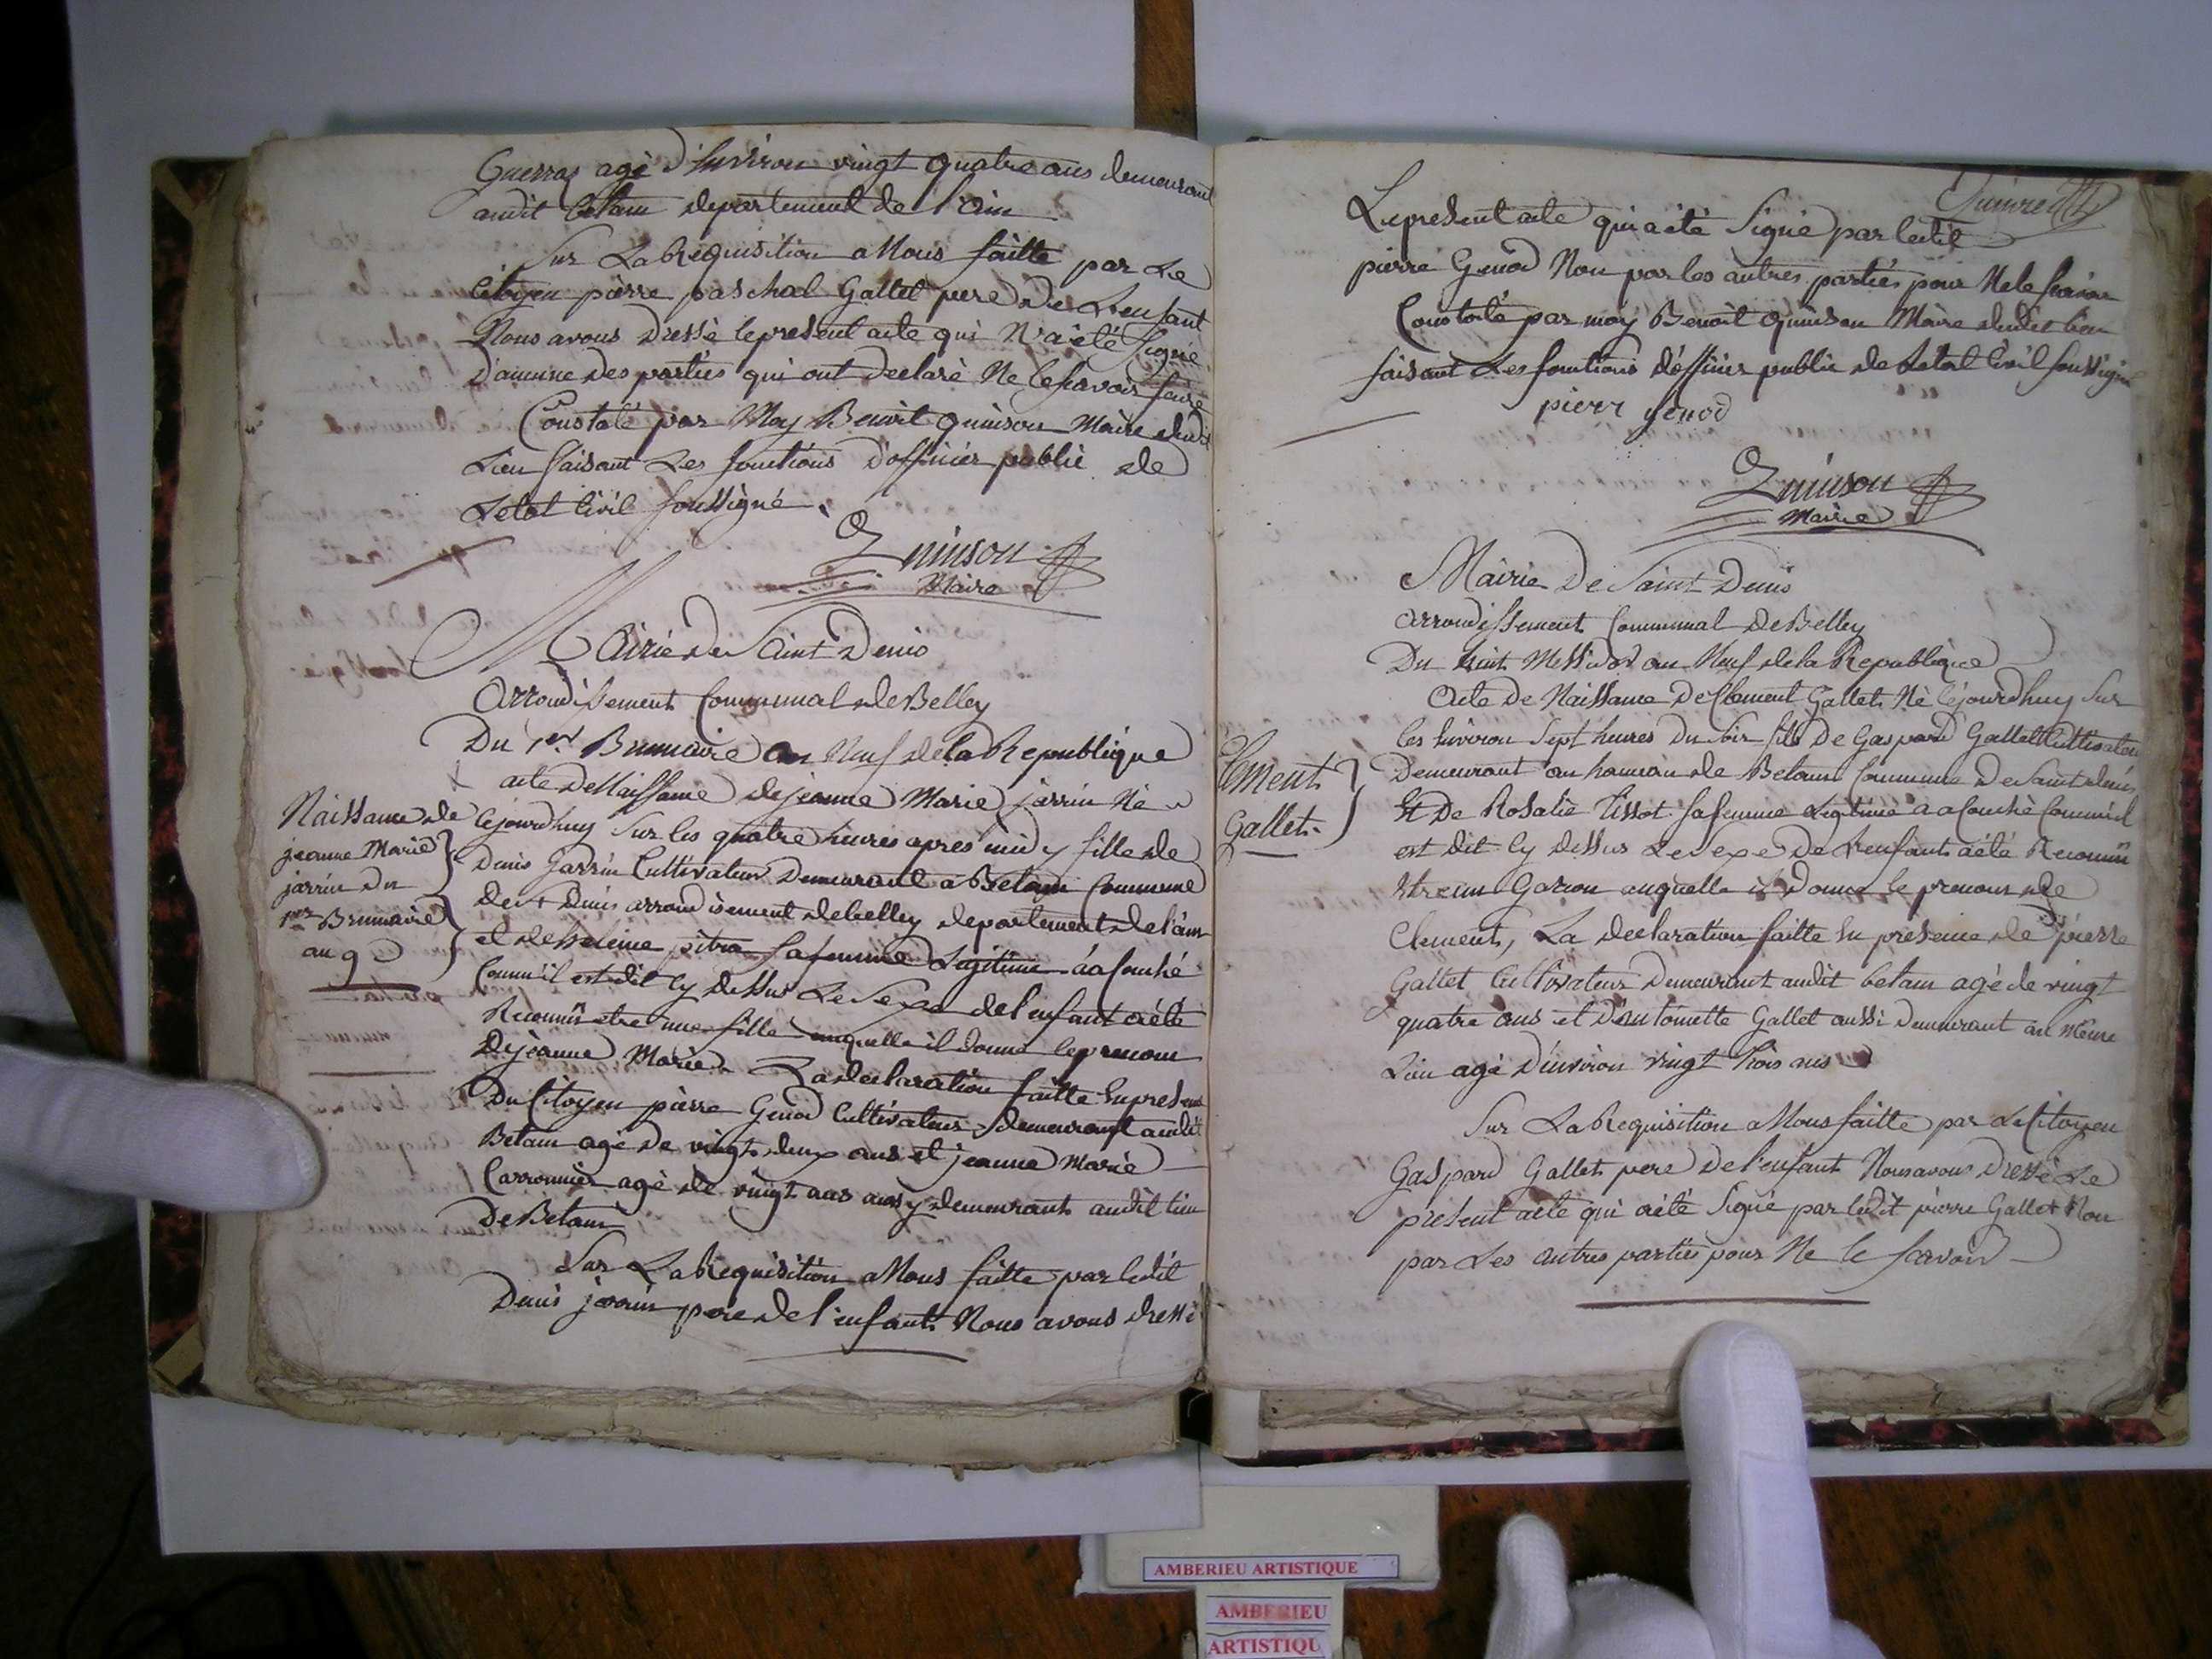 Guerraz agé d'Environ vingt quatre ans demeurant
audit betam departement de l'ain
Sur La Requisition a Nous faitte par Le
Citoyen pierre paschal Gallet pere de L'enfant
Nous avons Dressé le present acte qui N'a été Signé
D'aucune des parties qui ont declaré Ne le scavoir faire
Constaté par Moy Benoit quinson Maire dudit
Lieu faisant Les fonctions d'officier public de
Letat Civil soussigné.
Quinson
Maire
Mairie de Saint Denis
Arrondissement Communal de Belley
Du 1er Brumaire an Neuf de la Republique
acte de Naissance de jeanne Marie jarrin Né
Naissance de
jeanne Marie
jarrin du
1er Brumaire
an 9
Cejourdhuy Sur les quatre heures apres midy fille de
Denis Jarrin Cultivateur Demeurant a Betam Commune
de st Denis arrondisement de belley departement de l'ain
et de heleine pitra sa femme Legitime a acouché
Comm'il est dit Cy dessus Le Sexe de l'enfant a été
Reconnû etre une fille auquelle il donne le prenom
De jeanne Marie. La declaration faitte En presence
Du Citoyen pierre Genod Cultivateur demeurant audit
Betam agé de vingt deux ans et jeanne Marie
Carronnier agé de vingt ans aussy demeurant audit lieu
De Betam
Sur La Requisition a Nous faitte par ledit
Denis jarrin pere de l'enfant Nous avons dressé
Le present acte qui a été Signé par ledit
pierre Genod Non par les autres parties pour Ne le scavoir
Constaté par moy Benoit quinson Maire dudit lieu
faisant Les fonctions d'officier public de Letat Civil soussigné
pierr genod
Quinson
Maire
Mairie De Saint Denis
Arrondissement Communal De Belley
Du huit Messidor an Neuf de la Republique
Acte de Naissance De Clement Gallet Né Cejourdhuy Sur
Clement
Gallet.
les Environ Sept heures Du Soir fils De Gaspard Gallet Cultivateur
Demeurant au hameau de Betam Commune De Saint denis
Et De Rosalie Tissot sa femme Legitime a acouché Comm'il
est dit Cy dessus Le sexe De L'enfant a été Reconnû
Etre un Garcon auquelle il donne le prenom de
Clement, La declaration faitte En presence de pierre
Gallet Cultivateur Demeurant audit betam agé de vingt
quatre ans et D'antoinette Gallet aussi Demeurant au même
Lieu agé D'environ vingt trois ans
Sur La Requisition a Nous faitte par Le Citoyen
Gaspard Gallet pere De l'enfant Nous avons dressé Le
present acte qui a été Signé par ledit pierre Gallet Non
par Les autres parties pour Ne le scavoir
AMBERIEU ARTISTIQUE
AMBERIEU
ARTISTIQU